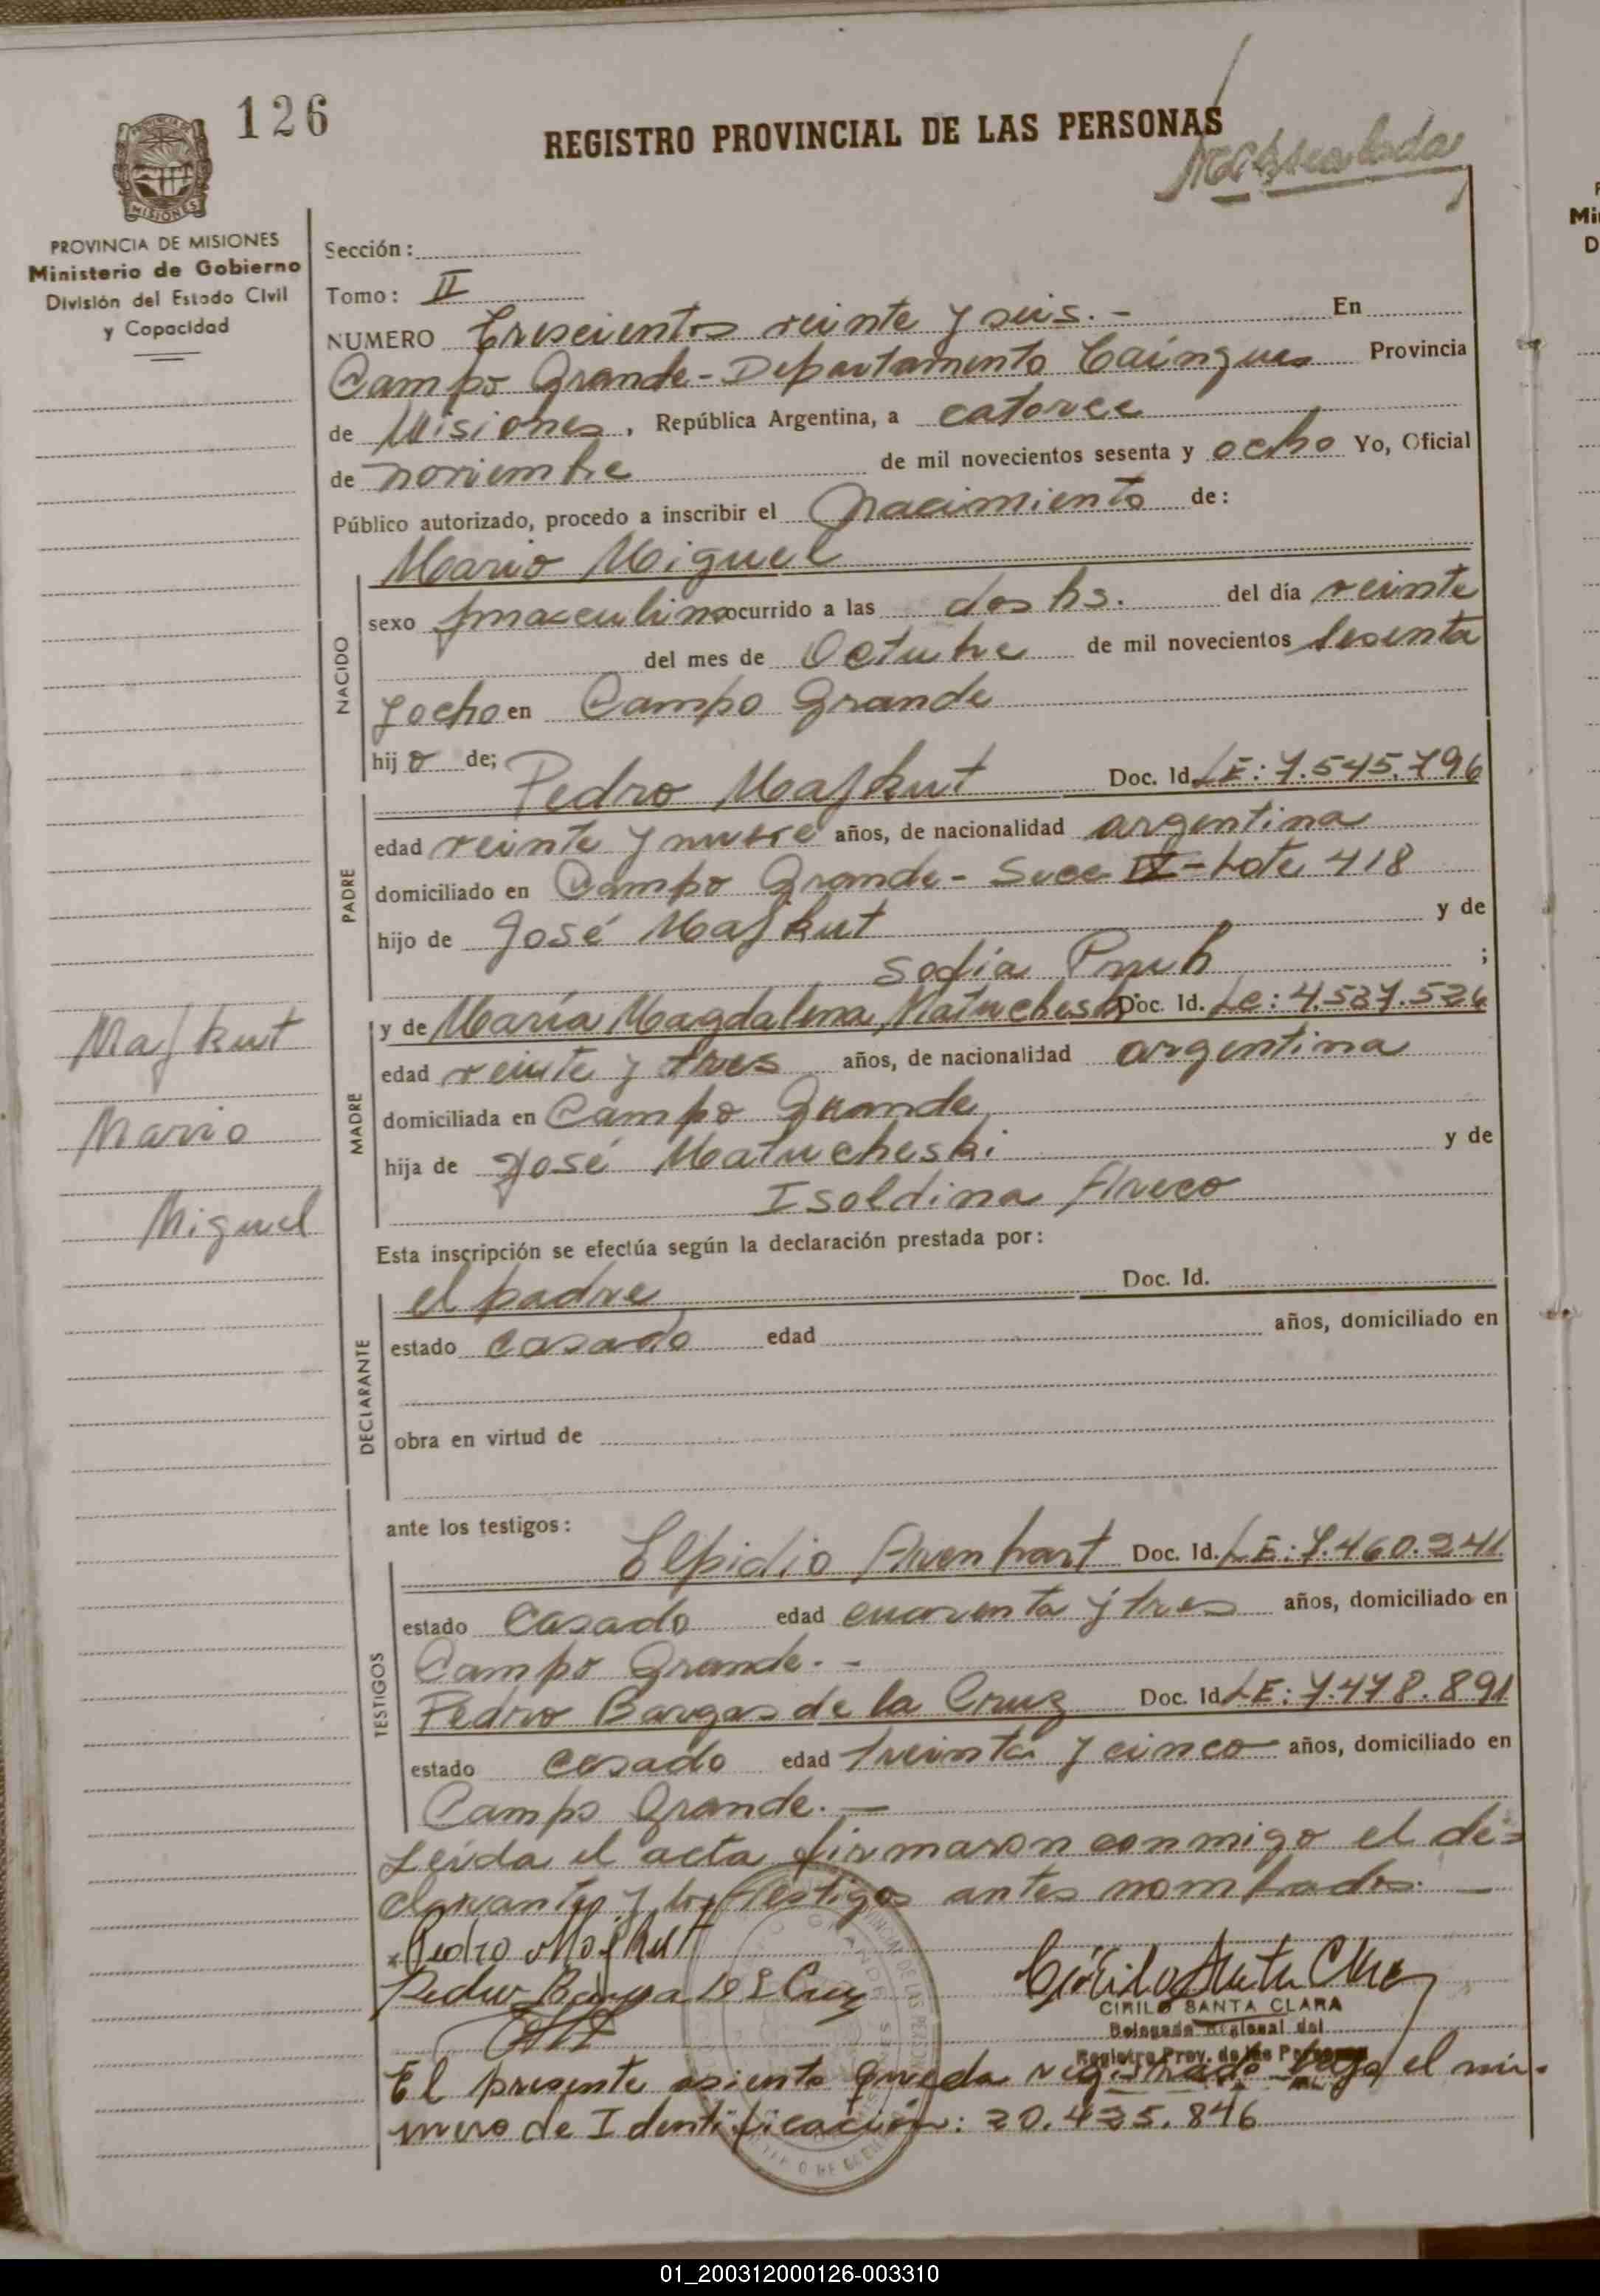 126
REGISTRO PROVINCIAL DE LAS PERSONAS
MISIONES
PROVINCIA DE MISIONES
Ministerio de Gobierno
División del Estado Civil
y Capacidad
Sección:
Tomo: II
NUMERO Trescientos veinte y seis. - En
Campo Grande - Departamento Cainguas Provincia
de Misiones, República Argentina, a catorce
de noviembre de mil novecientos sesenta y ocho Yo, Oficial
Público autorizado, procedo a inscribir el nacimiento de:
NACIDO
Mario Miguel
sexo masculino ocurrido a las dos hs. del día veinte
del mes de Octubre de mil novecientos sesenta
y ocho en Campo Grande
hijo de;
PADRE
Pedro Majkut Doc. Id. LE: 7.545.796
edad veinte y nueve años, de nacionalidad argentina
domiciliado en Campo Grande - Secc IX - Lote 418
hijo de José Majkut y de
Sofia ;
MADRE
y de María Magdalena Matucheski Doc. Id. Lc: 4.587.526
edad veinte y tres años, de nacionalidad argentina
domiciliada en Campo Grande
hija de José Matucheski y de
Isoldina
Majkut
Mario
Miguel
Esta inscripción se efectúa según la declaración prestada por:
DECLARANTE
el padre Doc. Id.
estado casado edad años, domiciliado en
obra en virtud de
ante los testigos:
TESTIGOS
Elpidio Avenhart Doc. Id. LE: 7.460.241
estado Casado edad cuarenta y tres años, domiciliado en
Campo Grande. -
Pedro Bargas de la Cruz Doc. Id. LE: 7.478.891
estado casado edad treinta y cinco años, domiciliado en
Campo Grande. -
Leida el acta firmaron conmigo el de=
clarante y los testigos antes nombrados. -
Pedro Majkut
CIRILO SANTA CLARA
Delegado Regional del
Registro Prov. de las Personas
El presente asiento queda registrado bajo el nú-
mero de Identificación: 20.425.846
01_200312000126-003310